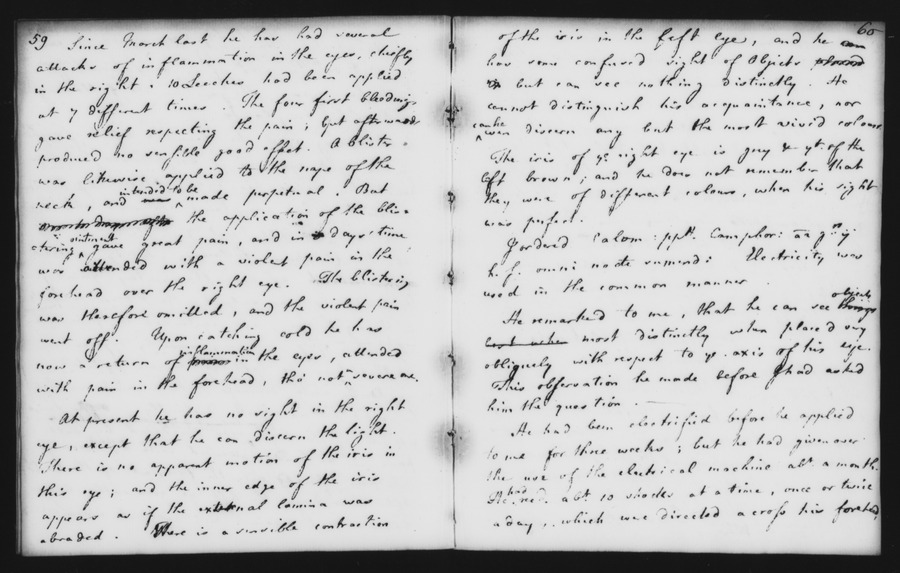 59
Since March last he has had several
attacks of inflammation in the eyes, chiefly
in the right. 10 Leeches had been applied
at 7 different times. The four first bleedings
gave relief respecting the pain; but afterwards
produced no sensible good effect. A blister
was likewise applied to the nape of the
neck, and was intended to be made perpetual. But
the application of the blis=
tering ointment gave great pain, and in days time
was attended with a violent pain in the
forehead over the right eye. The blistering
was therefore omitted, and the violent pain
went off. Upon catching cold he has
now a return of inflammation in the eyes, attended
with pain in the forehead, tho' not severe one.
At present he has no sight in the right
eye, except that he can discern the light.
There is no apparent motion of the iris in
this eye; and the inner edge of the iris
appears as if the external lamina was
abraded. There is a sensible contraction
60
of the iris in the left eye, and he can
has some confused sight of Objects placed
but can see nothing distinctly. He
cannot distinguish his acquaintance, nor
can he even discern any but the most vivid colours.
The iris of ye. right eye is grey & yt. of the
left brown; and he does not remember that
they were of different colours, when his sight
was perfect.
I ordered Calom: ppt. Camphor: aa gr. ij
h. s. omni nocte sumend: Electricity was
used in the common manner.
He remarked to me, that he can see things objects
best when most distinctly when placed very
obliquely with respect to ye. axis of his eye.
This observation he made before I had asked
him the question.
He had been electrified before he applied
to me for three weeks; but he had given over
the use of the electrical machine abt. a month.
He had recd. abt. 10 shocks at a time, once or twice
a day, which were directed across his forehead,